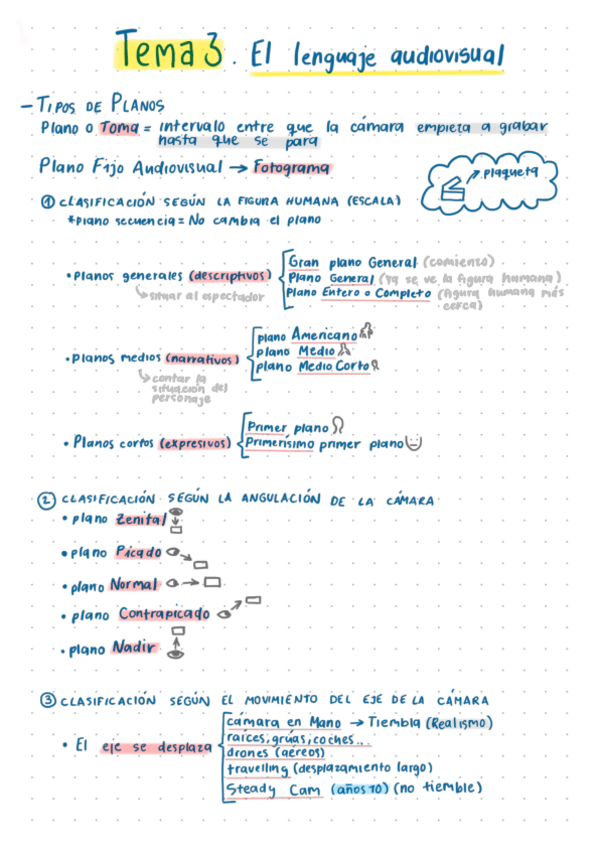 Tema 3. El lenguaje audiovisual
- TIPOS DE PLANOS
Plano o Toma = intervalo entre que la cámara empieza a grabar
hasta que se para
Plano Fijo Audiovisual → Fotograma
plaqueta
① CLASIFICACIÓN SEGÚN LA FIGURA HUMANA (ESCALA)
*plano secuencia = No cambia el plano
• Planos generales (descriptivos)
↳ situar al espectador
Gran plano General (comienzo)
Plano General (ya se ve la figura humana)
Plano Entero o Completo (figura humana más
cerca)
• Planos medios (narrativos)
↳ contar la
situación del
personaje
plano Americano
plano Medio
plano Medio Corto
• Planos cortos (expresivos)
Primer plano
Primerísimo primer plano
② CLASIFICACIÓN SEGÚN LA ANGULACIÓN DE LA CÁMARA
• plano Zenital
• plano Picado
• plano Normal
• plano Contrapicado
• plano Nadir
③ CLASIFICACIÓN SEGÚN EL MOVIMIENTO DEL EJE DE LA CÁMARA
• El eje se desplaza
cámara en Mano → Tiembla (Realismo)
raíces, grúas, coches...
drones (aéreos)
travelling (desplazamiento largo)
Steady Cam (años 70) (no tiemble)